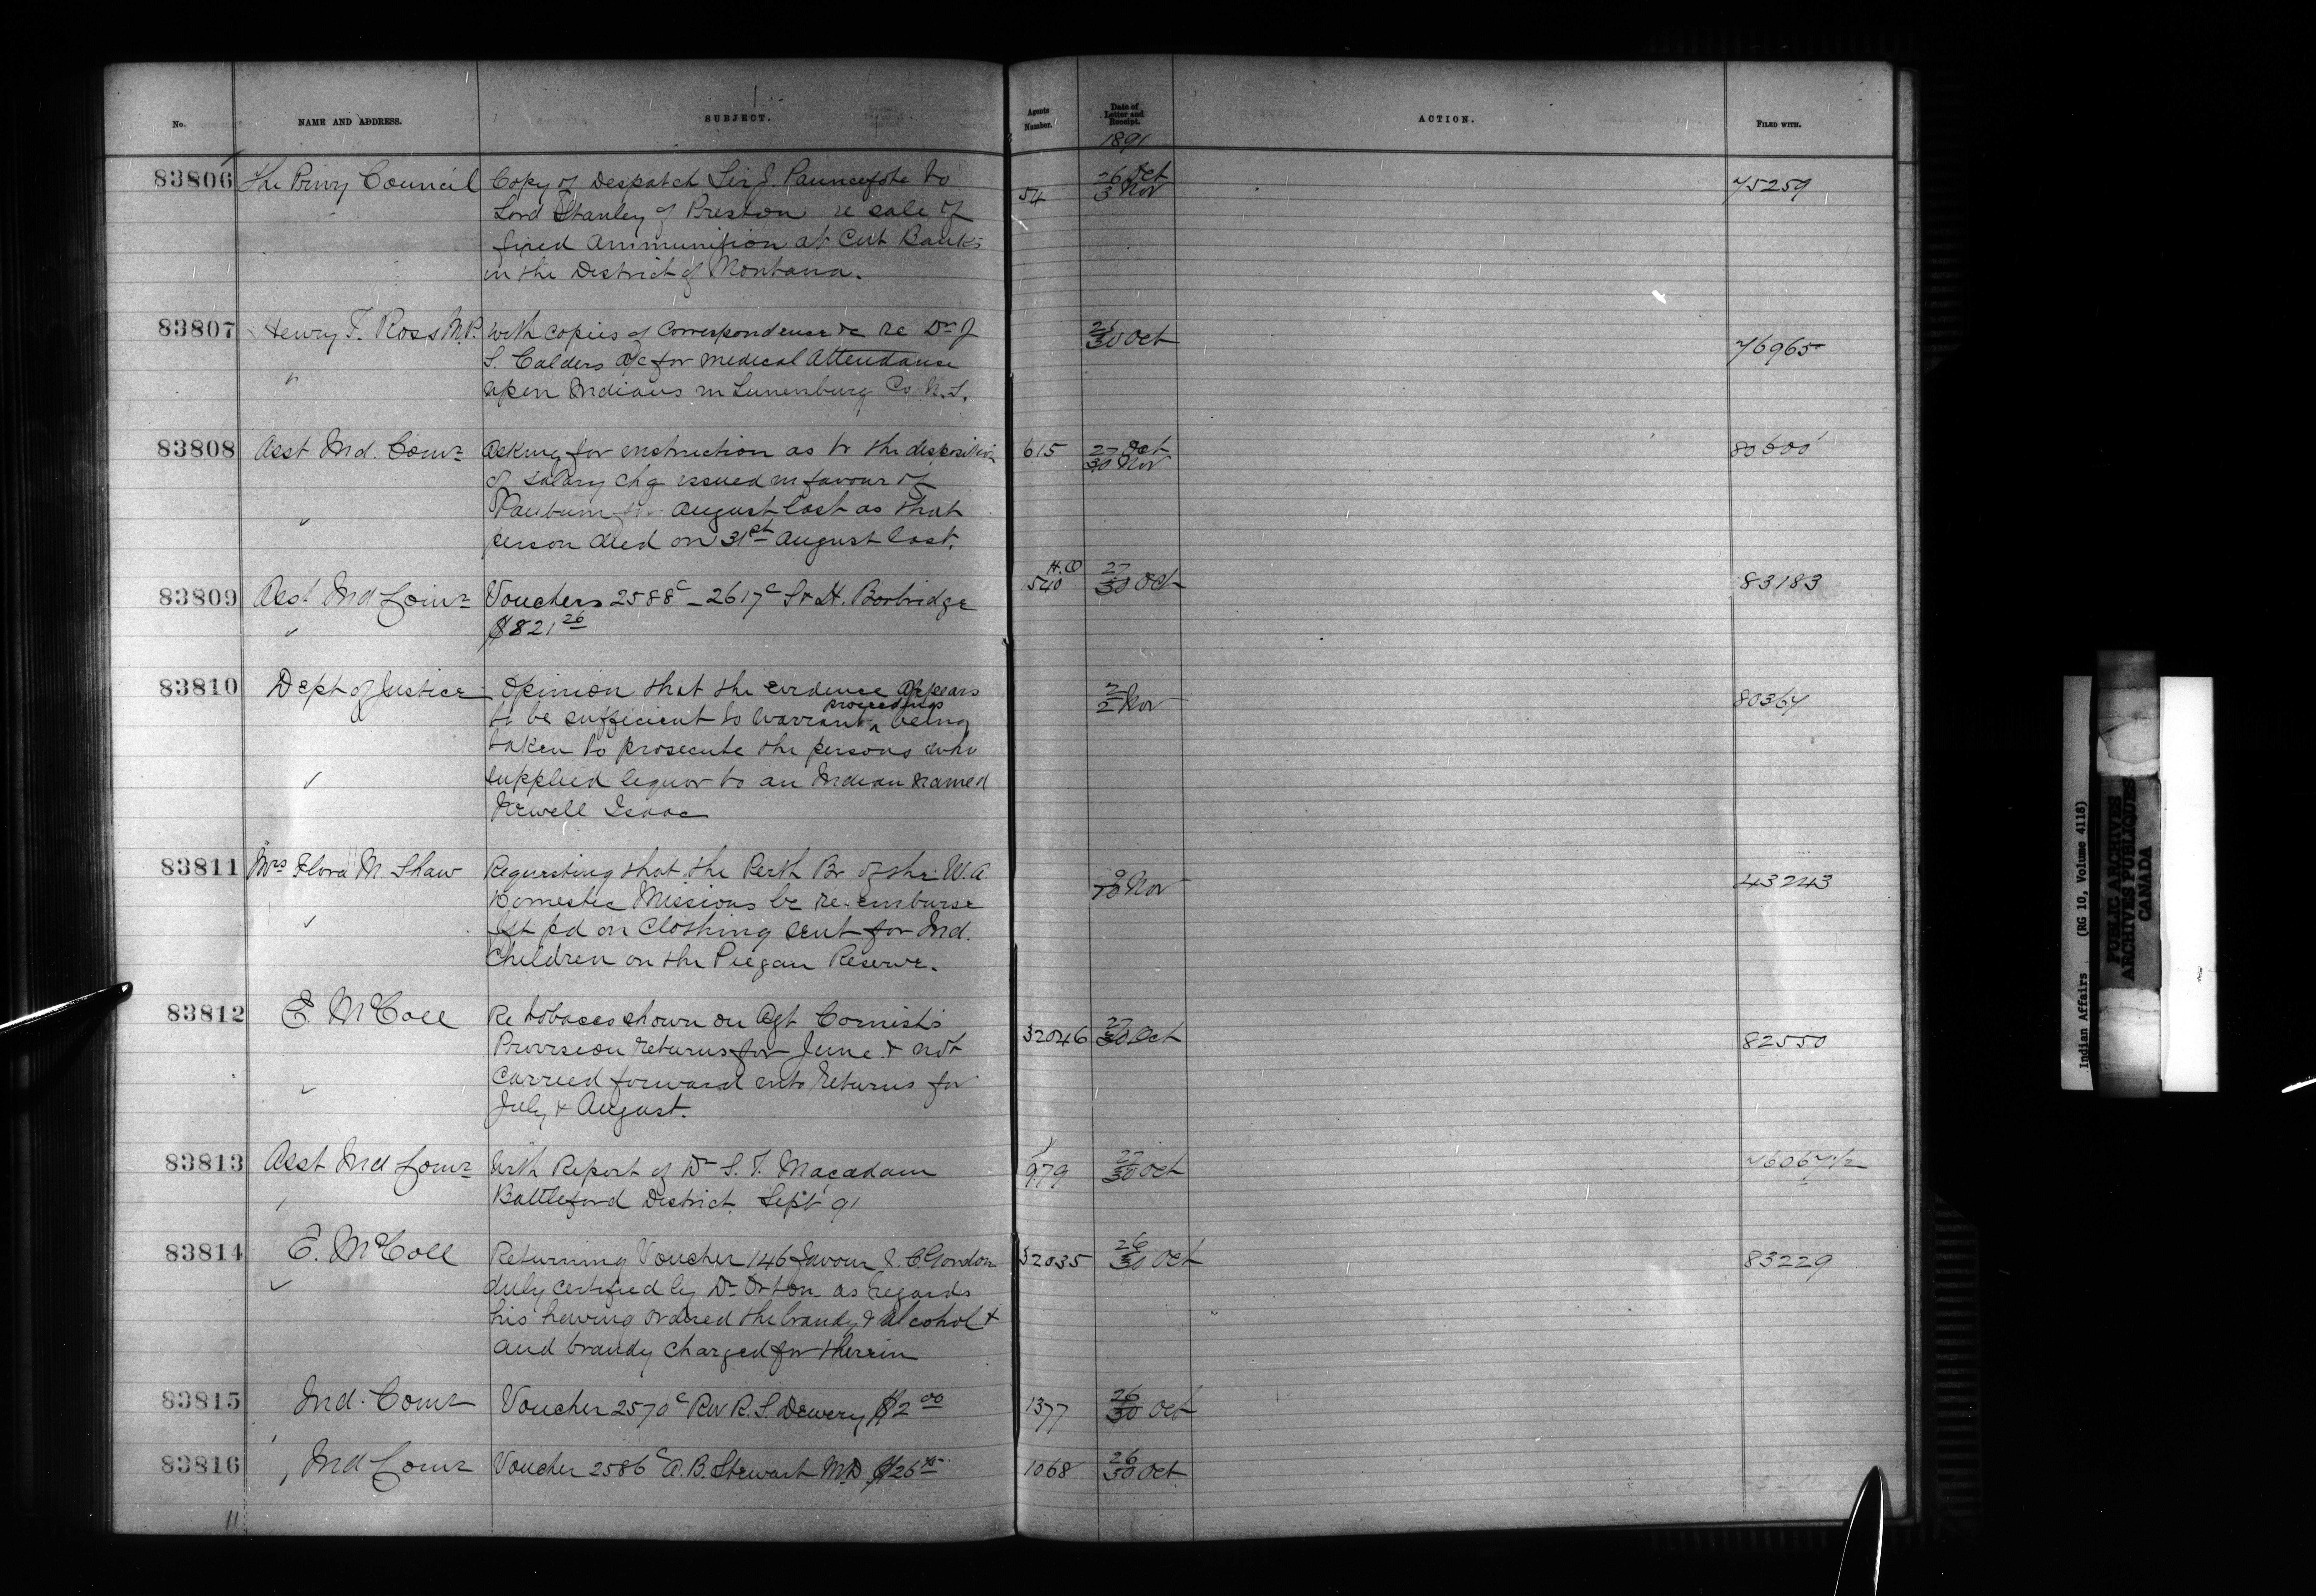 No. NAME AND ADDRESS. SUBJECT. Agents Number. Date of Letter and Receipt. ACTION. FILED WITH.
1891
83806 The Privy Council Copy of Despatch Sir J. Pauncefote to 54 26 Oct 3 Nov 75259
Lord Stanley of Preston re sale of
fixed ammunition at Cut Banks
in the District of Montana.
83807 Henry F. Ross M.P. With copies of correspondence &c re Dr J 30 Oct 76965
S. Calders a/c for medical attendance
" upon Indians in Lunenburg Co N.S.
83808 Asst Ind. Comr Asking for instruction as to the disposition 615 27 Oct 30 Nov 80600
of salary chq issued in favour of
August last as that
person died on 31st August last.
83809 Asst Ind Comr Vouchers 2588c - 2617c S & H. Borbridge H.O 540 27 30 Oct 83183
$821 26
83810 Dept of Justice Opinion that the evidence appears 2 2 Nov 80367
to be sufficient to warrant proceedings being
taken to prosecute the persons who
supplied liquor to an Indian named
Newell Isaac
83811 Mrs Flora M. Shaw Requesting that the Perth Br of the W.A. 9 10 Nov 43243
Domestic Missions be re-imburse
fgt pd on clothing sent for Ind.
Children on the Piegan Reserve.
83812 E. McColl Re tobacco shown on Agt Cornish's 32046 27 30 Oct 82550
Provision returns for June & not
carried forward into returns for
July & August.
83813 Asst Ind Comr With Report of Dr S. T. Macadam 979 27 30 Oct 76067 1/2
Battleford District Sept 91
83814 E. McColl Returning Voucher 146 favour J. C. Gordon 32035 26 30 Oct 83229
duly certified by Dr Orton as regards
his having ordered the brandy & alcohol &
and brandy charged for therein
83815 Ind. Comr Voucher 2570c Rev R. S. Dewery $2 00 1377 26 30 Oct
83816 Ind Comr Voucher 2586c A. B. Stewart MD $26 1068 26 30 Oct
Indian Affairs (RG 10, Volume 4118)
PUBLIC ARCHIVES
ARCHIVES PUBLIQUES
CANADA